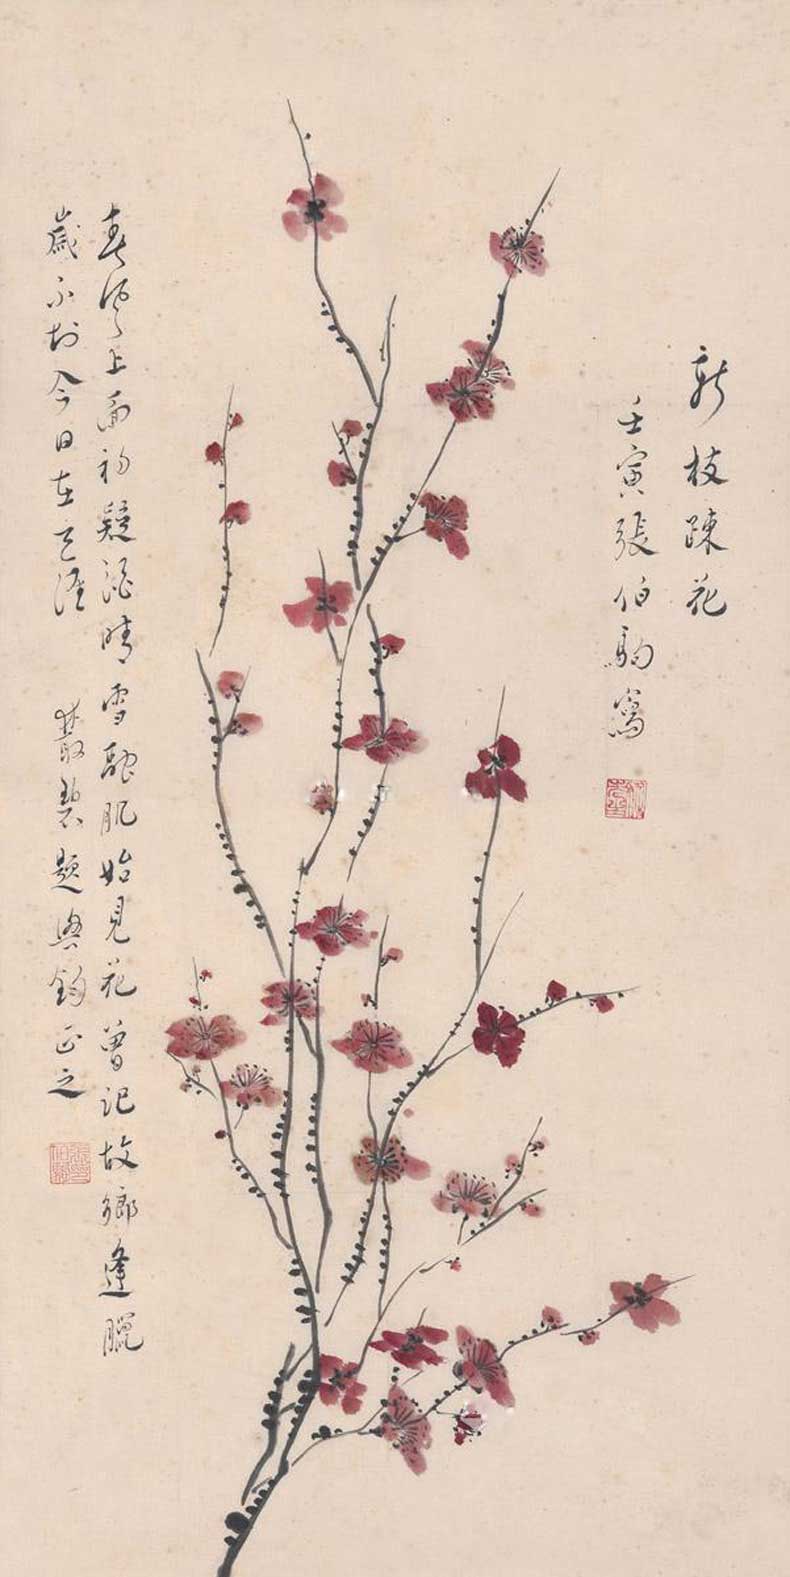 新枝疎花
壬寅張伯駒寫
春風上面初疑酒晴雪融肌始見花曾記故鄉逢臘
歲不於今日在天涯 叢碧題與鈞正之